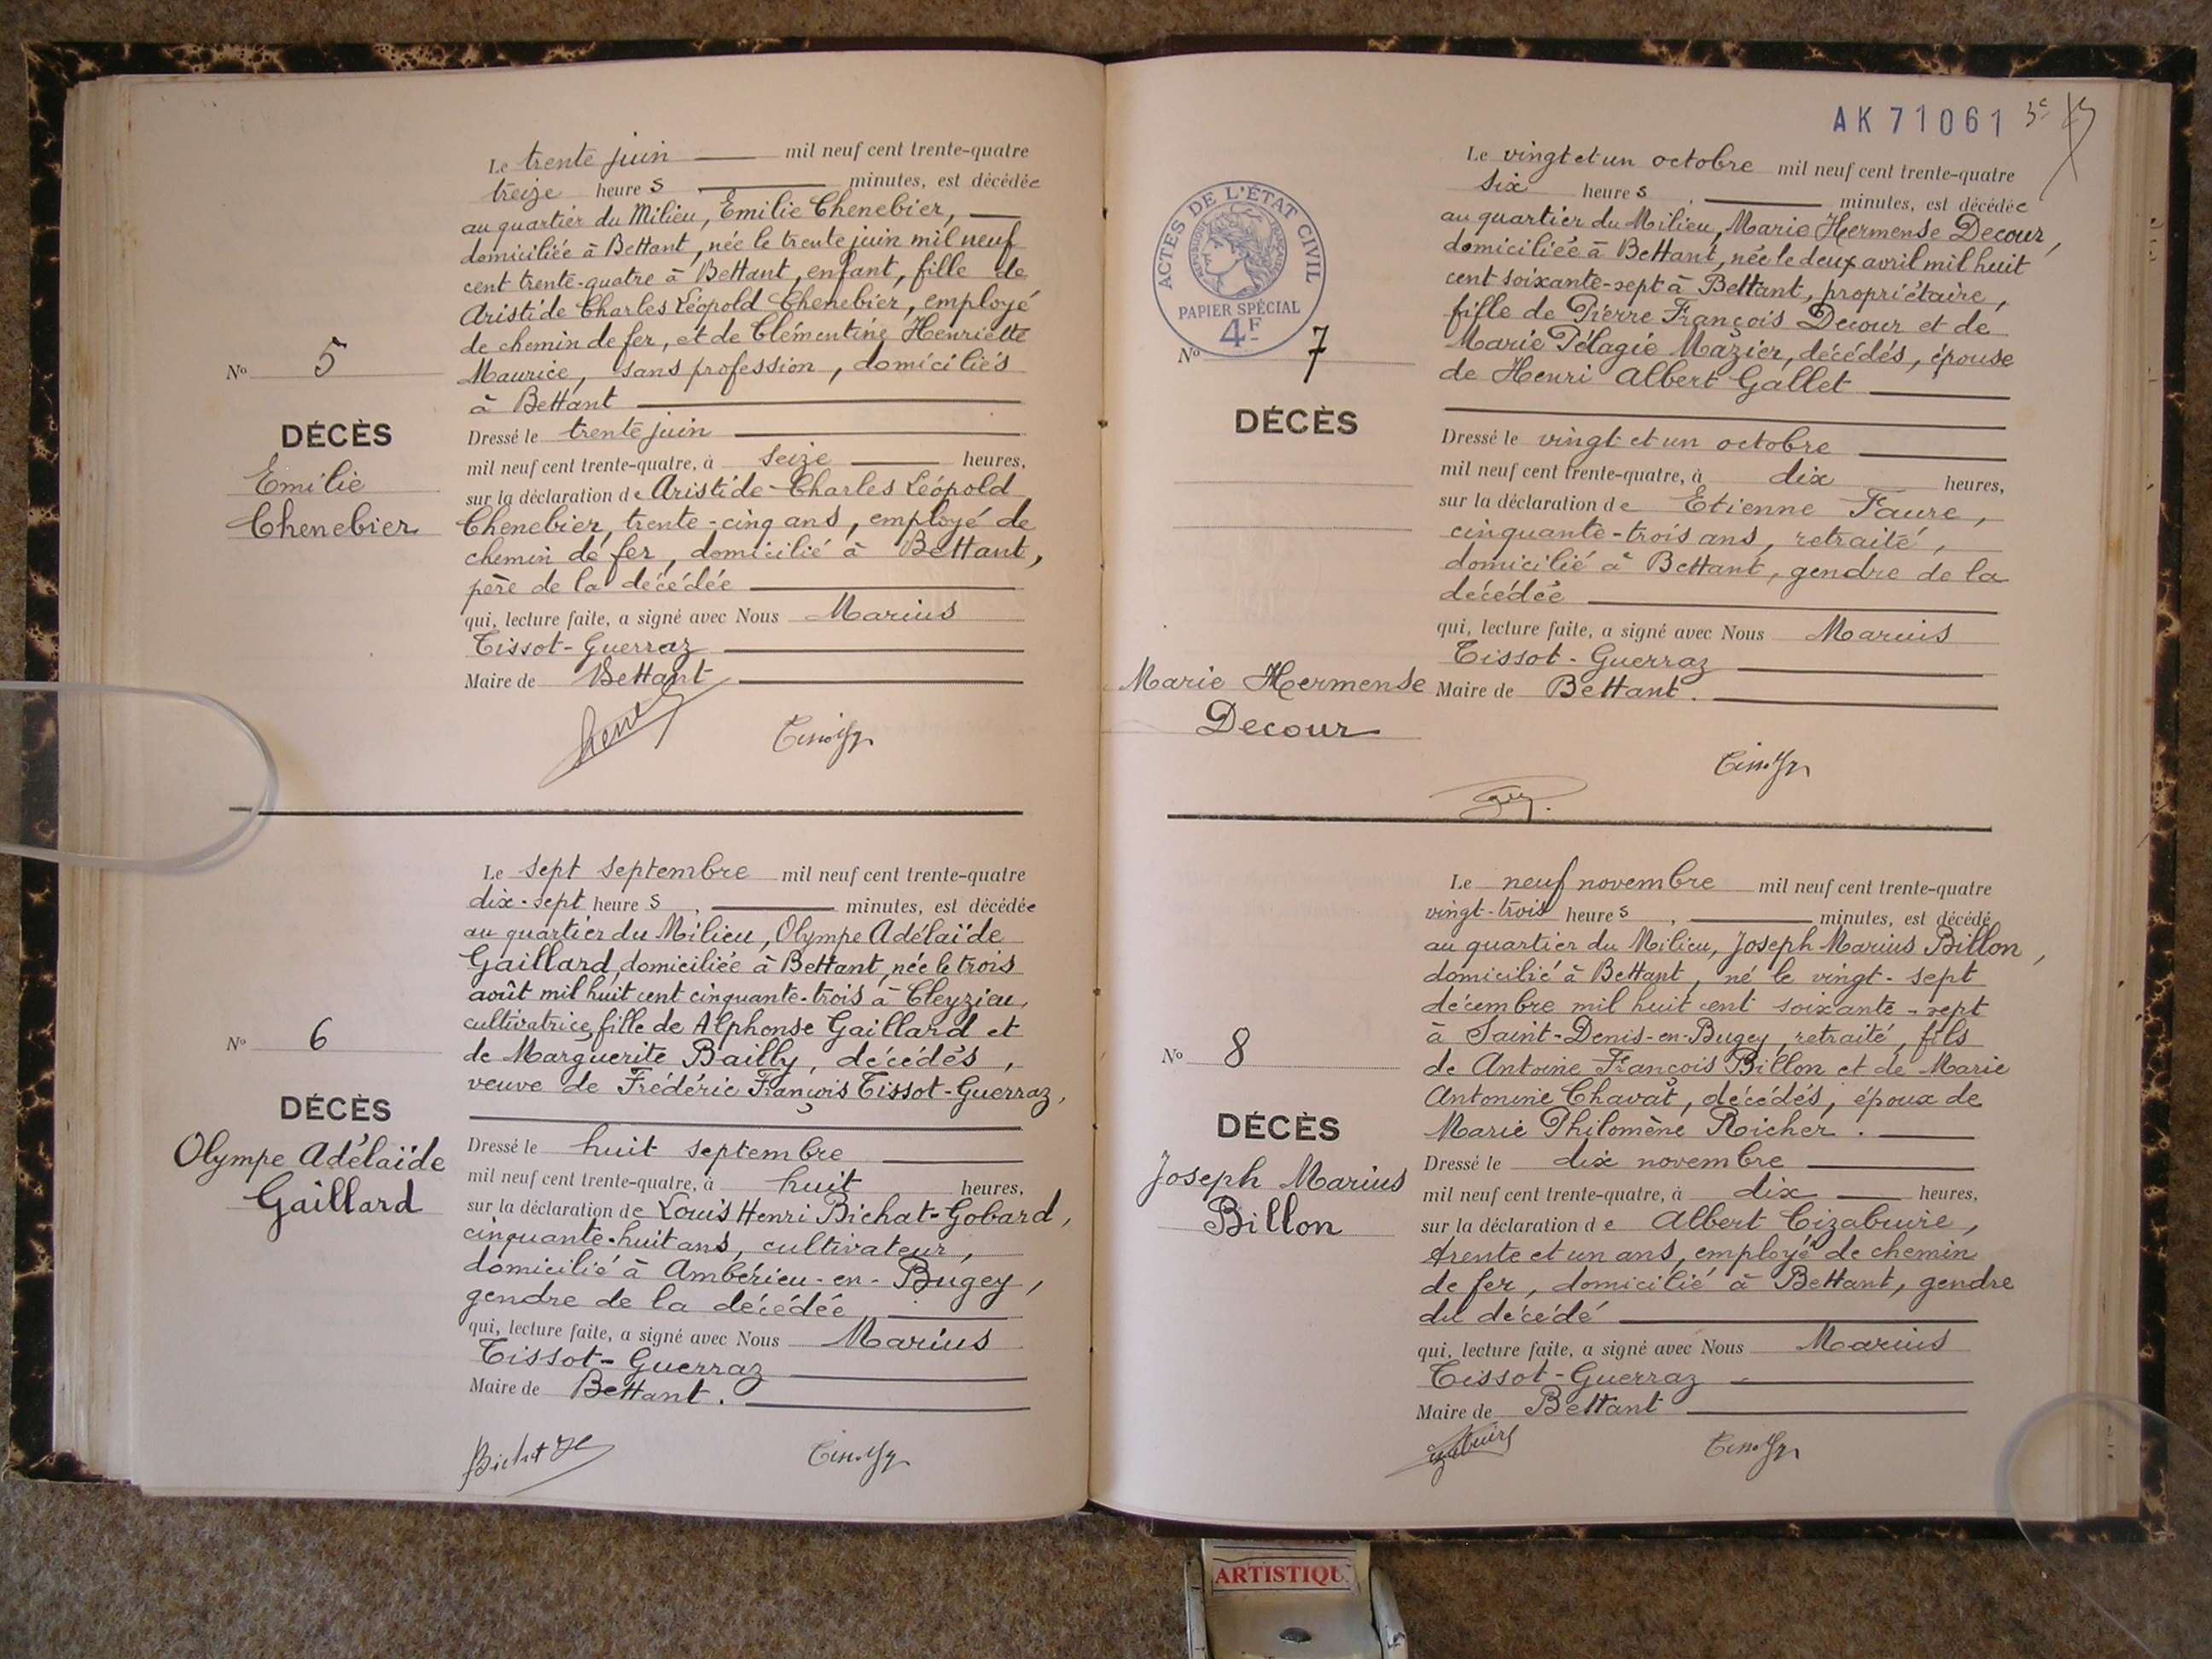 Le trente juin mil neuf cent trente-quatre
treize heures minutes, est décédée
au quartier du Milieu, Emilie Chenebier,
domiciliée à Bettant, née le trente juin mil neuf
cent trente-quatre à Bettant, enfant, fille de
Aristide Charles Léopold Chenebier, employé
de chemin de fer, et de Clémentine Henriette
Maurice, sans profession, domiciliés
à Bettant
Nº 5
DÉCÈS
Emilie
Chenebier
Dressé le trente juin
mil neuf cent trente-quatre, à seize heures,
sur la déclaration de Aristide-Charles Léopold
Chenebier, trente-cinq ans, employé de
chemin de fer, domicilié à Bettant,
père de la décédée
qui, lecture faite, a signé avec Nous Marius
Tissot-Guerraz
Maire de Bettant
Le sept septembre mil neuf cent trente-quatre
dix-sept heures, minutes, est décédée
au quartier du Milieu, Olympe Adélaïde
Gaillard, domiciliée à Bettant, née le trois
août mil huit cent cinquante-trois à Cleyzieu,
cultivatrice, fille de Alphonse Gaillard et
de Marguerite Bailly, décédés,
veuve de Frédéric François Tissot-Guerraz,
Nº 6
DÉCÈS
Olympe Adélaïde
Gaillard
Dressé le huit septembre
mil neuf cent trente-quatre, à huit heures,
sur la déclaration de Louis Henri Bichat-Gobard,
cinquante-huit ans, cultivateur,
domicilié à Ambérieu-en-Bugey,
gendre de la décédée
qui, lecture faite, a signé avec Nous Marius
Tissot-Guerraz
Maire de Bettant.
AK 71061
ACTES DE L'ÉTAT CIVIL
RÉPUBLIQUE FRANÇAISE
PAPIER SPÉCIAL
4F
Le vingt et un octobre mil neuf cent trente-quatre
six heures, minutes, est décédée
au quartier du Milieu, Marie Hermense Decour,
domiciliée à Bettant, née le deux avril mil huit
cent soixante-sept à Bettant, propriétaire,
fille de Pierre François Decour et de
Marie Pélagie Mazier, décédés, épouse
de Henri Albert Gallet
Nº 7
DÉCÈS
Marie Hermense
Decour
Dressé le vingt et un octobre
mil neuf cent trente-quatre, à dix heures,
sur la déclaration de Etienne Faure,
cinquante-trois ans, retraité,
domicilié à Bettant, gendre de la
décédée
qui, lecture faite, a signé avec Nous Marius
Tissot-Guerraz
Maire de Bettant.
Le neuf novembre mil neuf cent trente-quatre
vingt-trois heures, minutes, est décédé
au quartier du Milieu, Joseph Marius Billon,
domicilié à Bettant, né le vingt-sept
décembre mil huit cent soixante-sept
à Saint-Denis-en-Bugey, retraité, fils
de Antoine François Billon et de Marie
Antonine Chavat, décédés, époux de
Marie Philomène Richer.
Nº 8
DÉCÈS
Joseph Marius
Billon
Dressé le dix novembre
mil neuf cent trente-quatre, à dix heures,
sur la déclaration de Albert Cizabuire,
trente et un ans, employé de chemin
de fer, domicilié à Bettant, gendre
du décédé
qui, lecture faite, a signé avec Nous Marius
Tissot-Guerraz
Maire de Bettant
ARTISTIQU